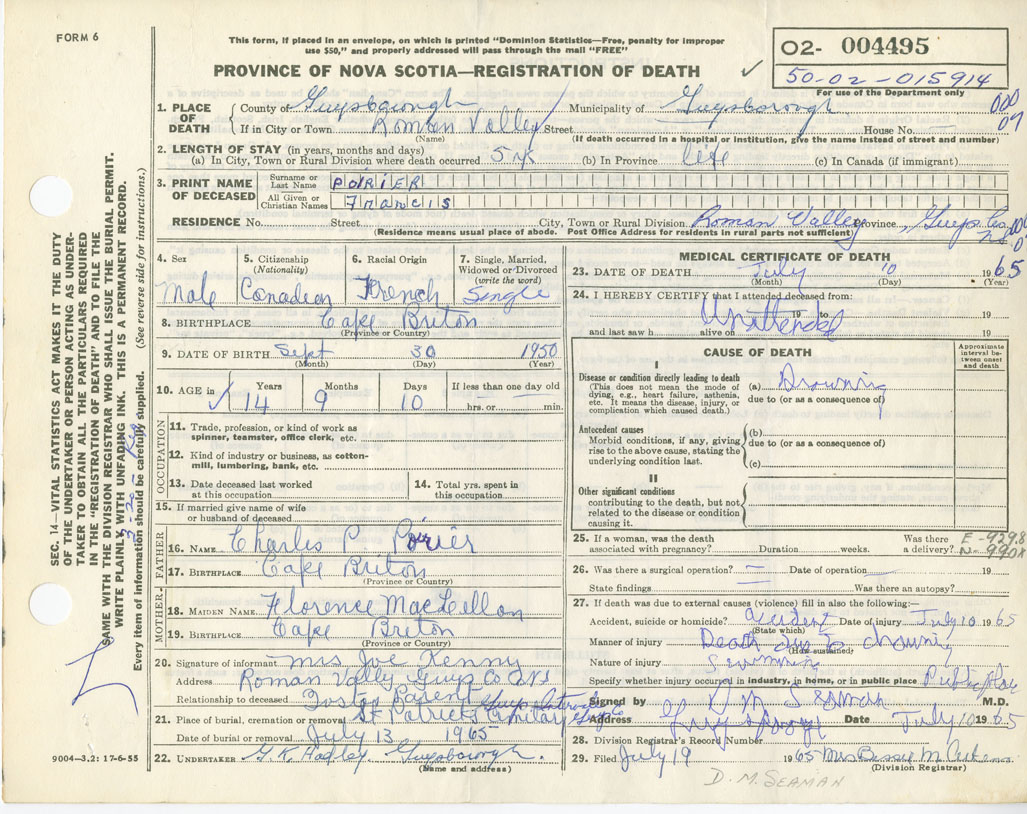 FORM 6
This form, if placed in an envelope, on which is printed "Dominion Statistics—Free, penalty for improper
use $50," and properly addressed will pass through the mail "FREE"
O2- 004495
50-02-015914
For use of the Department only
PROVINCE OF NOVA SCOTIA—REGISTRATION OF DEATH ✓
1. PLACE OF DEATH County of Guysborough Municipality of Guysborough
If in City or Town Roman Valley Street House No.
(Name) (If death occurred in a hospital or institution, give the name instead of street and number)
2. LENGTH OF STAY (in years, months and days)
(a) In City, Town or Rural Division where death occurred 5 (b) In Province life (c) In Canada (if immigrant)
3. PRINT NAME OF DECEASED Surname or Last Name POIRIER
All Given or Christian Names Francis
RESIDENCE No. Street City, Town or Rural Division Roman Valley Province, Guys Co.
(Residence means usual place of abode. Post Office Address for residents in rural parts not sufficient)
SEC. 14—VITAL STATISTICS ACT MAKES IT THE DUTY
OF THE UNDERTAKER OR PERSON ACTING AS UNDER-
TAKER TO OBTAIN ALL THE PARTICULARS REQUIRED
IN THE "REGISTRATION OF DEATH" AND TO FILE THE
SAME WITH THE DIVISION REGISTRAR WHO SHALL ISSUE THE BURIAL PERMIT.
WRITE PLAINLY WITH UNFADING INK. THIS IS A PERMANENT RECORD.
Every item of information should be carefully supplied. (See reverse side for instructions.)
4. Sex
Male
5. Citizenship
(Nationality)
Canadian
6. Racial Origin
French
7. Single, Married,
Widowed or Divorced
(write the word)
Single
8. BIRTHPLACE Cape Breton
(Province or Country)
9. DATE OF BIRTH Sept 30 1950
(Month) (Day) (Year)
10. AGE in Years Months Days If less than one day old
✓ 14 9 10 hrs. or min.
OCCUPATION
11. Trade, profession, or kind of work as
spinner, teamster, office clerk, etc.
12. Kind of industry or business, as cotton-
mill, lumbering, bank, etc.
13. Date deceased last worked
at this occupation
14. Total yrs. spent in
this occupation
15. If married give name of wife
or husband of deceased
FATHER
16. NAME Charles P. Poirier
17. BIRTHPLACE Cape Breton
(Province or Country)
MOTHER
18. MAIDEN NAME Florence MacLellan
19. BIRTHPLACE Cape Breton
(Province or Country)
20. Signature of informant Mrs Joe Kenny
Address Roman Vally Guys Co NS
Relationship to deceased Foster Parent
21. Place of burial, cremation or removal St Patricks
Date of burial or removal July 13 1965
22. UNDERTAKER G.K. Hadley. Guysborough.
(Name and address)
9004—3.2: 17-6-55
MEDICAL CERTIFICATE OF DEATH
23. DATE OF DEATH July 10 1965
(Month) (Day) (Year)
24. I HEREBY CERTIFY that I attended deceased from:
19 to 19
Unattended
and last saw h alive on 19
CAUSE OF DEATH
Approximate
interval be-
tween onset
and death
I
Disease or condition directly leading to death
(This does not mean the mode of
dying, e.g., heart failure, asthenia,
etc. It means the disease, injury, or
complication which caused death.)
(a) Drowning
due to (or as a consequence of)
Antecedent causes
Morbid conditions, if any, giving
rise to the above cause, stating the
underlying condition last.
(b)
due to (or as a consequence of)
(c)
II
Other significant conditions
contributing to the death, but not
related to the disease or condition
causing it.
25. If a woman, was the death
associated with pregnancy? Duration weeks. Was there
a delivery?
E-929.8
N-990X
26. Was there a surgical operation? Date of operation 19
State findings Was there an autopsy?
27. If death was due to external causes (violence) fill in also the following:—
Accident, suicide or homicide? accident Date of injury July 10 1965
(State which)
Manner of injury Death due to drowning
(How sustained)
Nature of injury Swimming
Specify whether injury occurred in industry, in home, or in public place Public place
Signed by D M Seaman M.D.
Address Guysborough Date July 10 1965
28. Division Registrar's Record Number
29. Filed July 19 1965 Mrs Bessy M.
(Division Registrar)
D. M. SEAMAN